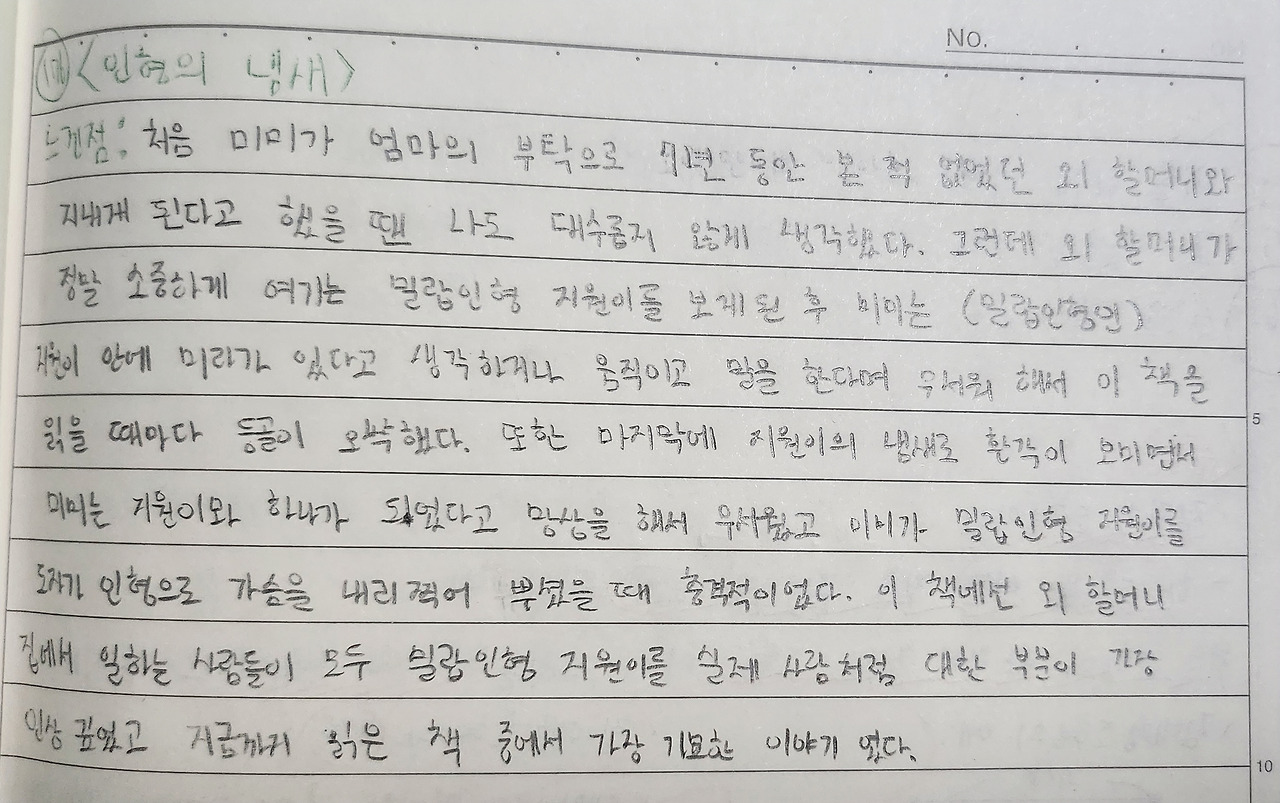 No.
<인형의 냄새>
느낀점: 처음 미미가 엄마의 부탁으로 7년 동안 본 적 없었던 외 할머니와
지내게 된다고 했을 땐 나도 대수롭지 않게 생각했다. 그런데 외 할머니가
정말 소중하게 여기는 밀랍인형 지원이를 보게된 후 미미는 (밀랍인형인)
지원이 안에 미라가 있다고 생각하거나 움직이고 말을 한다며 무서워 해서 이 책을
읽을 때마다 등골이 오싹했다. 또한 마지막에 지원이의 냄새로 환각이 보이면서
미미는 지원이와 하나가 되었다고 망상을 해서 무서웠고 미미가 밀랍인형 지원이를
도자기 인형으로 가슴을 내리 찍어 부셨을 때 충격적이었다. 이 책에선 외 할머니
집에서 일하는 사람들이 모두 밀랍인형 지원이를 실제 사람처럼 대한 부분이 가장
인상 깊었고 지금까지 읽은 책 중에서 가장 기묘한 이야기 였다.
5
10